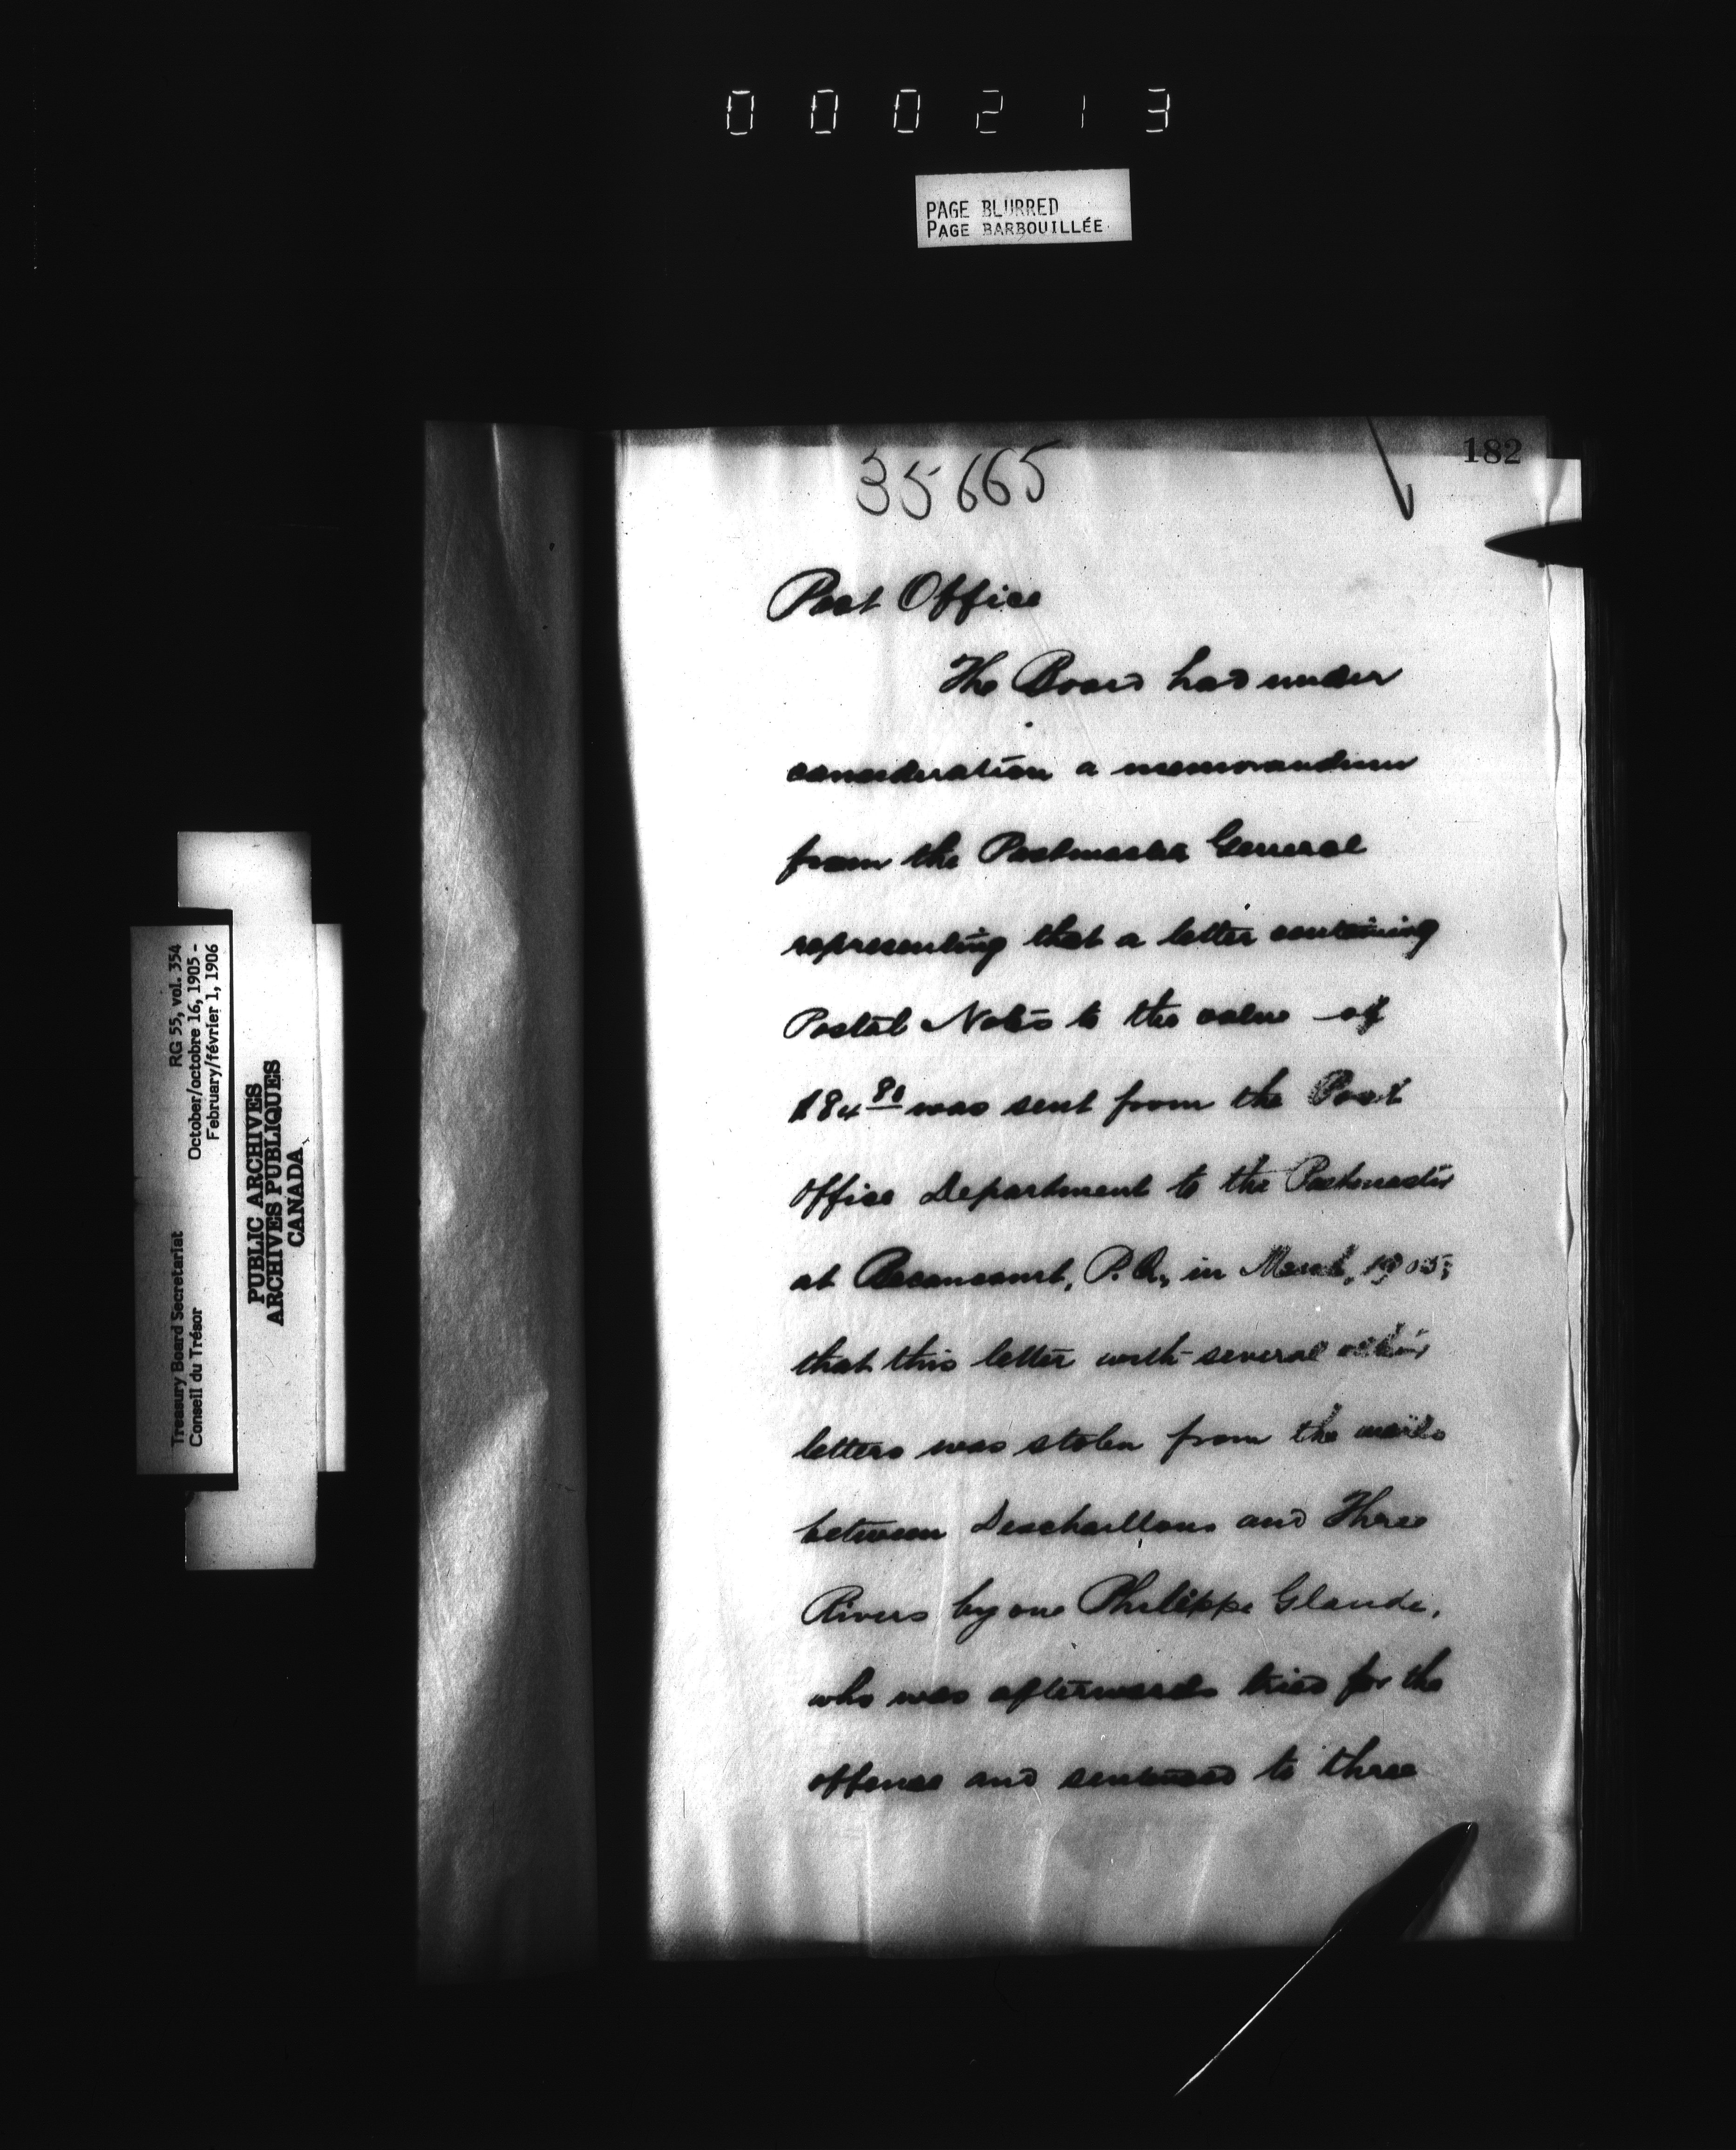 000213
PAGE BLURRED
PAGE BARBOUILLÉE
182
35665
Post Office
The Board had under
consideration a memorandum
from the Postmaster General
representing that a letter containing
Postal Notes to the value of
was sent from the Post
Office Department to the Postmaster
at Becancourt, P.Q., in March, 1905;
that this letter with several other
letters was stolen from the mails
between Deschaillons and Three
Rivers by one Philippe Glaude,
who was afterwards tried for the
offence and sentenced to three
Treasury Board Secretariat RG 55, vol. 354
Conseil du Trésor October/octobre 16, 1905 -
February/février 1, 1906
PUBLIC ARCHIVES
ARCHIVES PUBLIQUES
CANADA